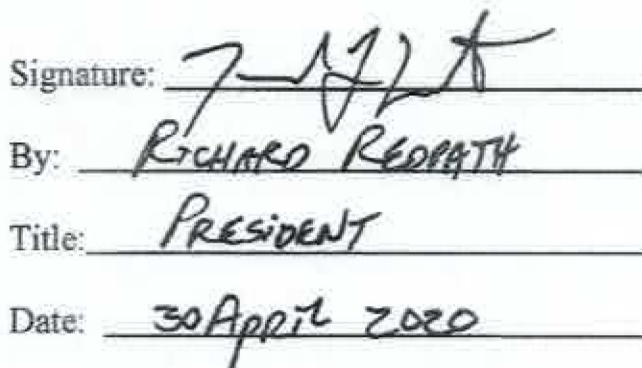 Signature:
By: RICHARD REDPATH
Title: PRESIDENT
Date: 30 April 2020